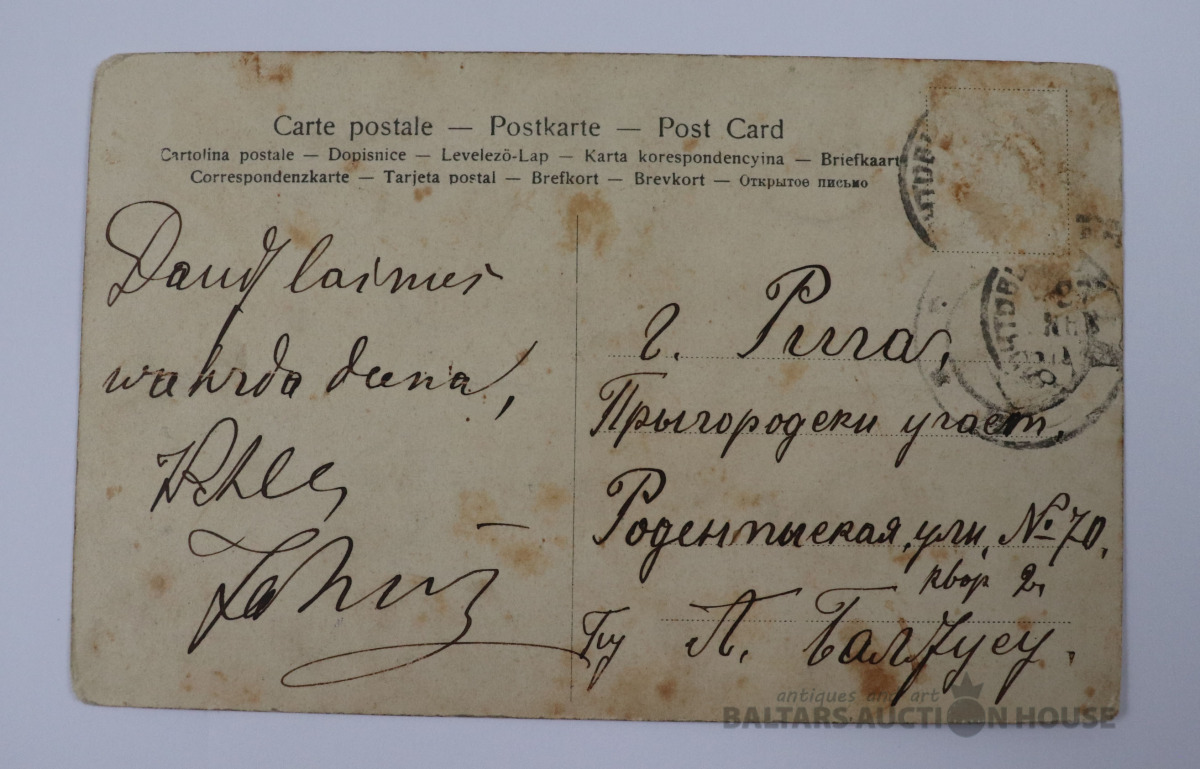 Carte postale — Postkarte — Post Card
Cartolina postale — Dopisnice — Levelezö-Lap — Karta korespondencyina — Briefkaart
Correspondenzkarte — Tarjeta postal — Brefkort — Brevkort — Открытое письмо
Daudz laimes
wahrda deena,
г. Рига,
Прыгородски участ.
Роденпыская ули, № 70,
квар 2,
Гну Л. Балтусу.
antiques and art
BALTARS AUCTION HOUSE